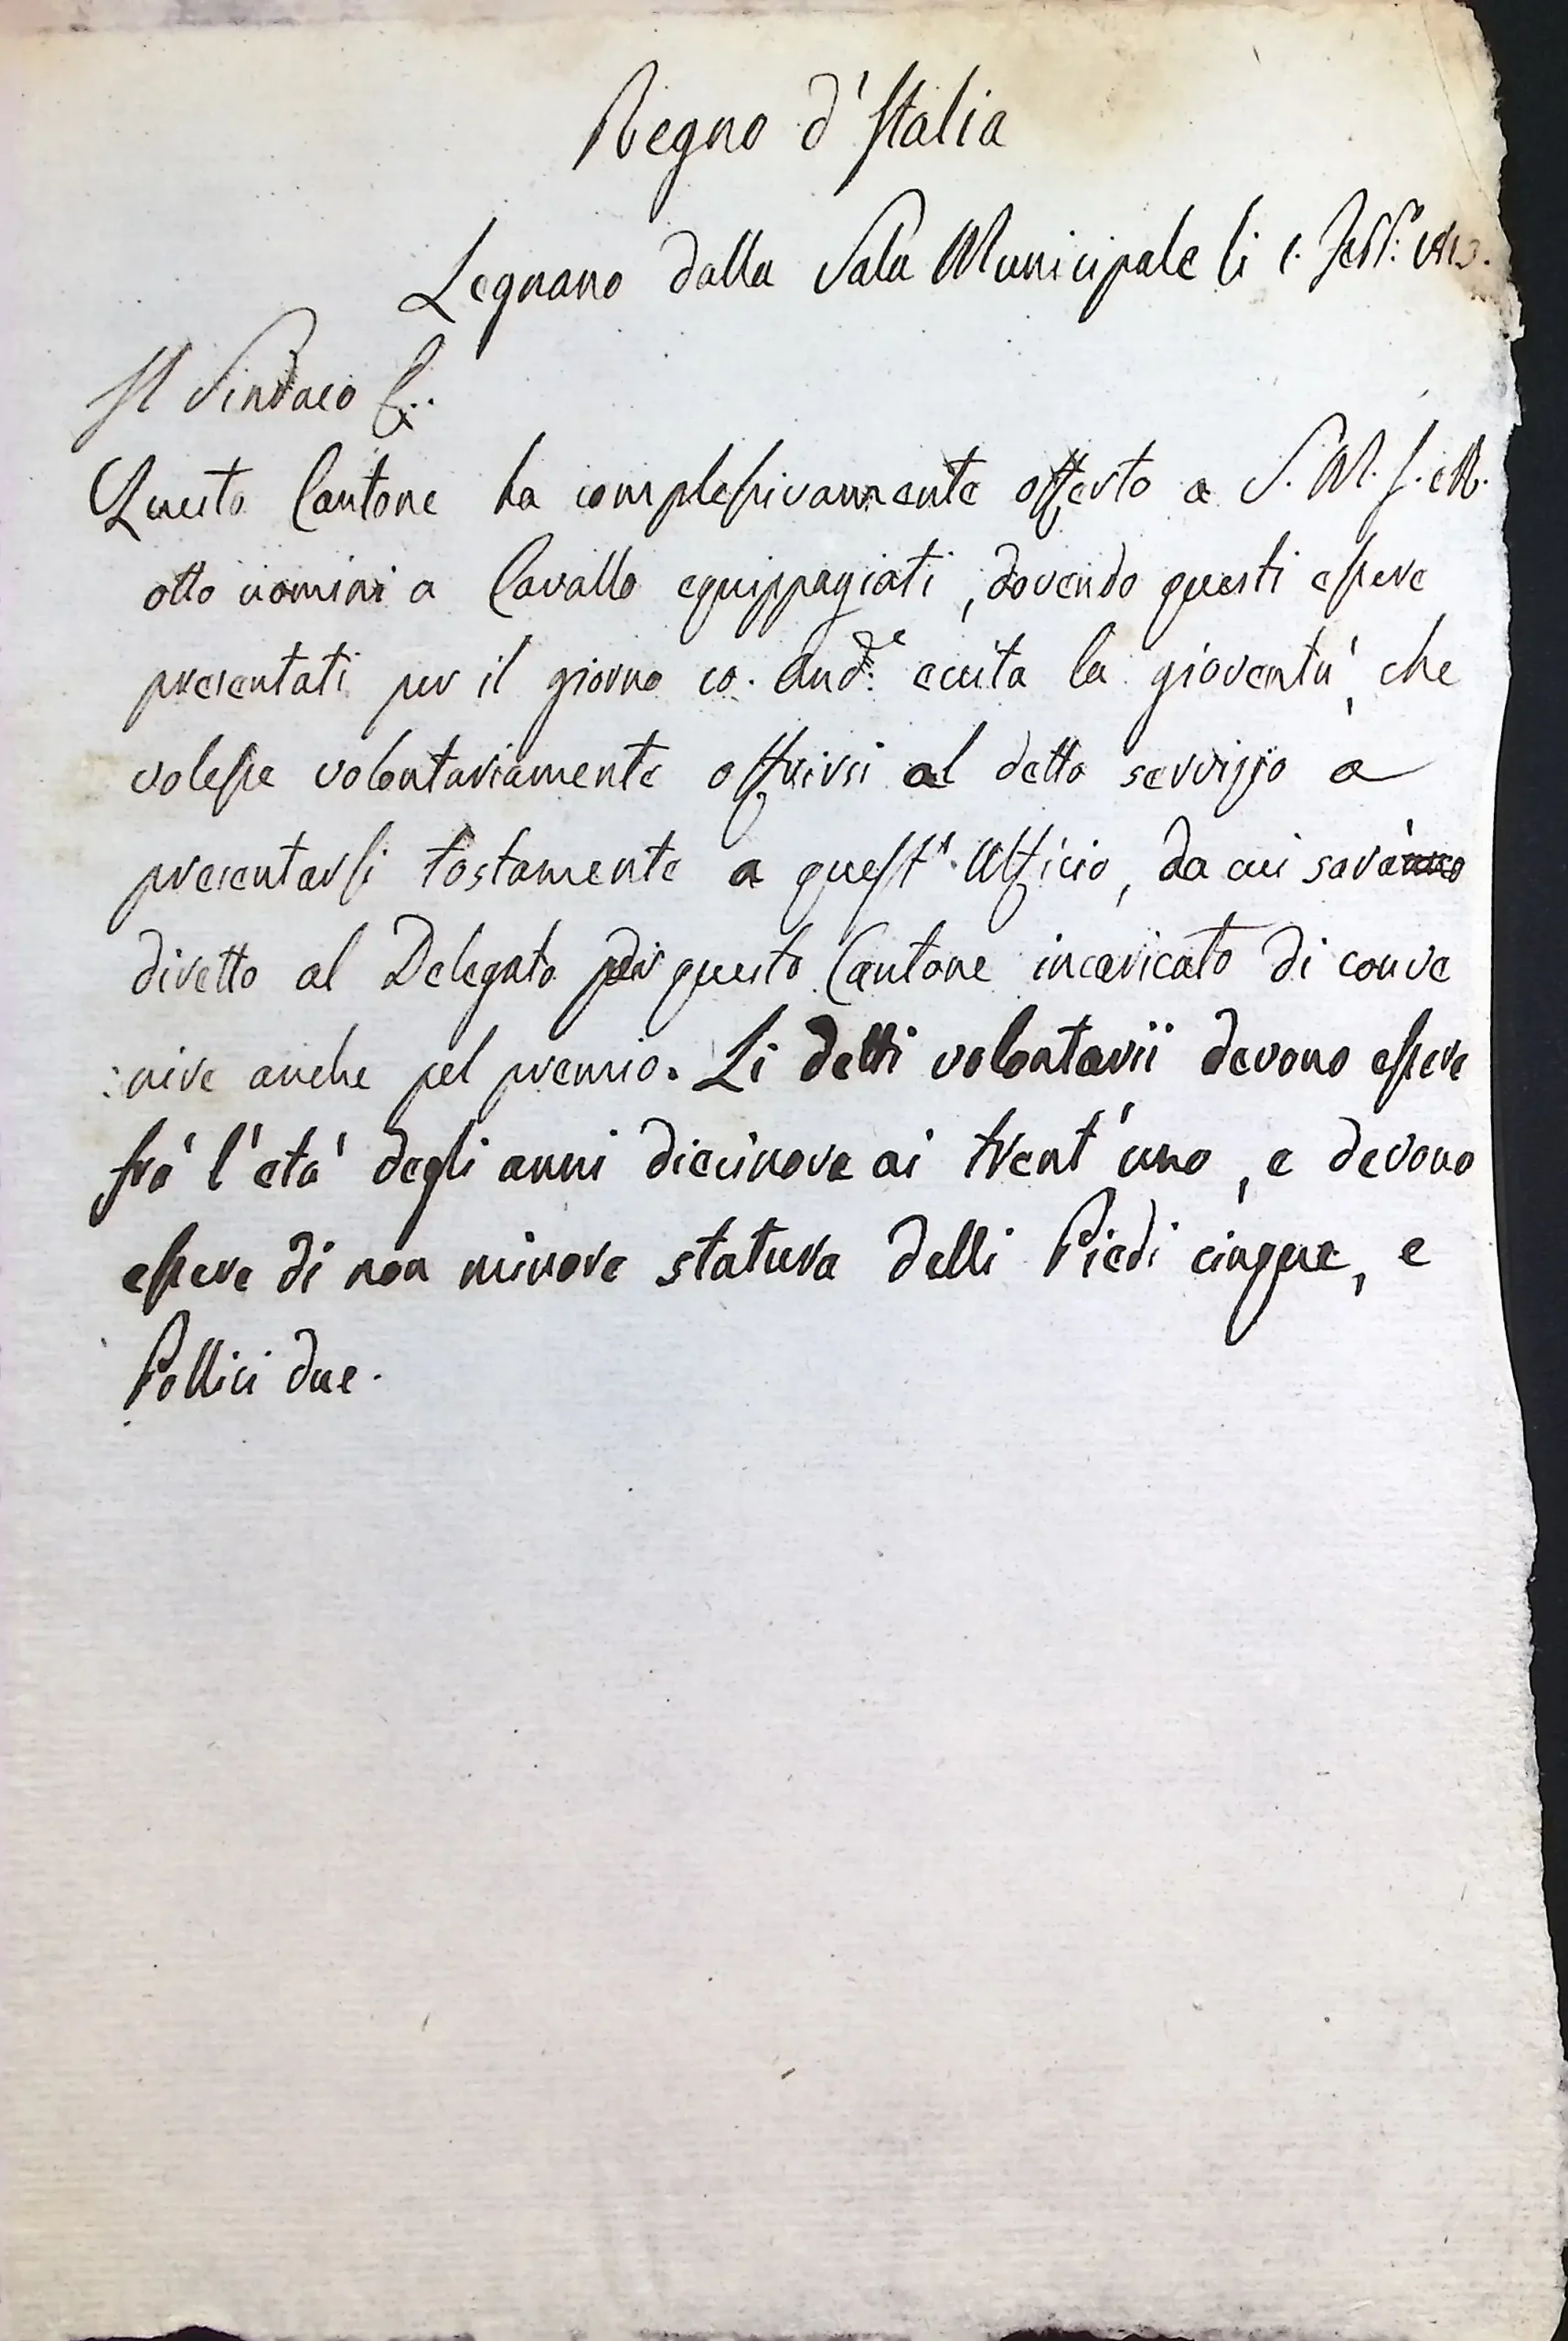 Regno d'Italia
Legnano dalla Sala Municipale li 1. Febb.º 1813.
Il Sindaco
Questo Cantone ha complessivamente offerto a S. M. I. e R.
otto uomini a Cavallo equippagiati, dovendo questi essere
presentati per il giorno 10. And.e eccita la gioventù, che
volesse volontariamente offrirsi al detto servizio a
presentarsi tostamente a quest'. Ufficio, da cui sarà
diretto al Delegato per questo Cantone incaricato di conve
:nire anche pel premio. Li detti volontarii devono essere
frà l'età degli anni diecinove ai trent'uno, e devono
essere di non minore statura delli Piedi cinque, e
Pollici due.